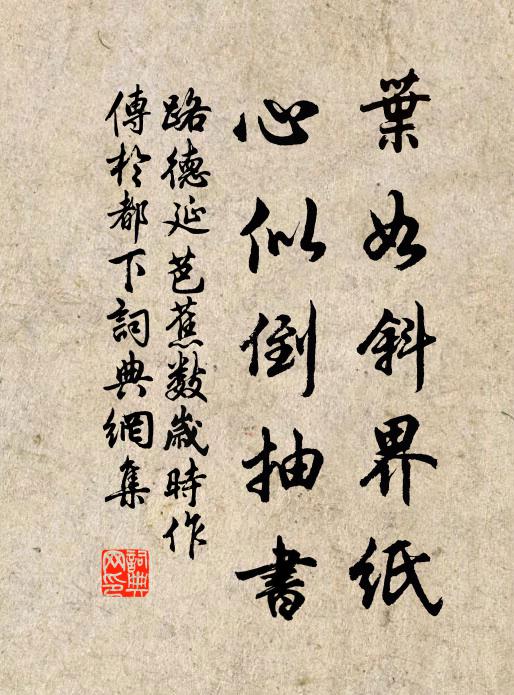 葉如斜界紙
心似倒抽書
路德延芭蕉數歲時作
傳於都下詞典網集
詞典網印